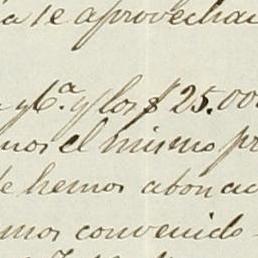 te aprovechar
y Cª y los $25.000
mos el mismo pr
le hemos abonad
mos convenido